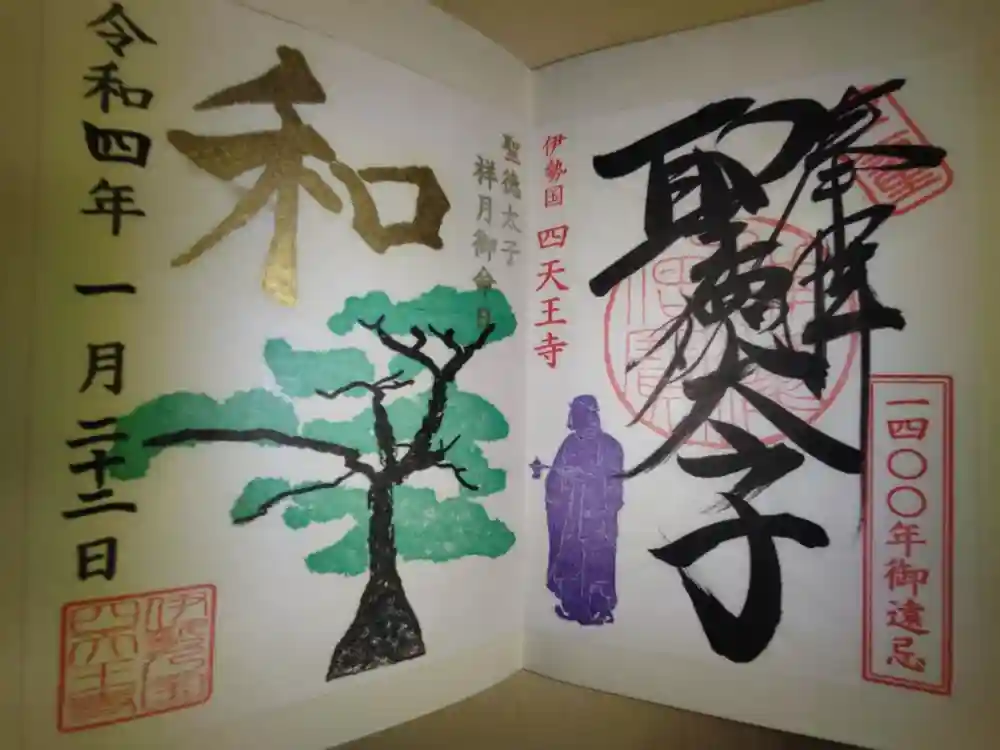 奉拝
聖徳太子
一四〇〇年御遠忌
伊勢国 四天王寺
聖徳太子
祥月御命日
和
令和四年一月二十二日